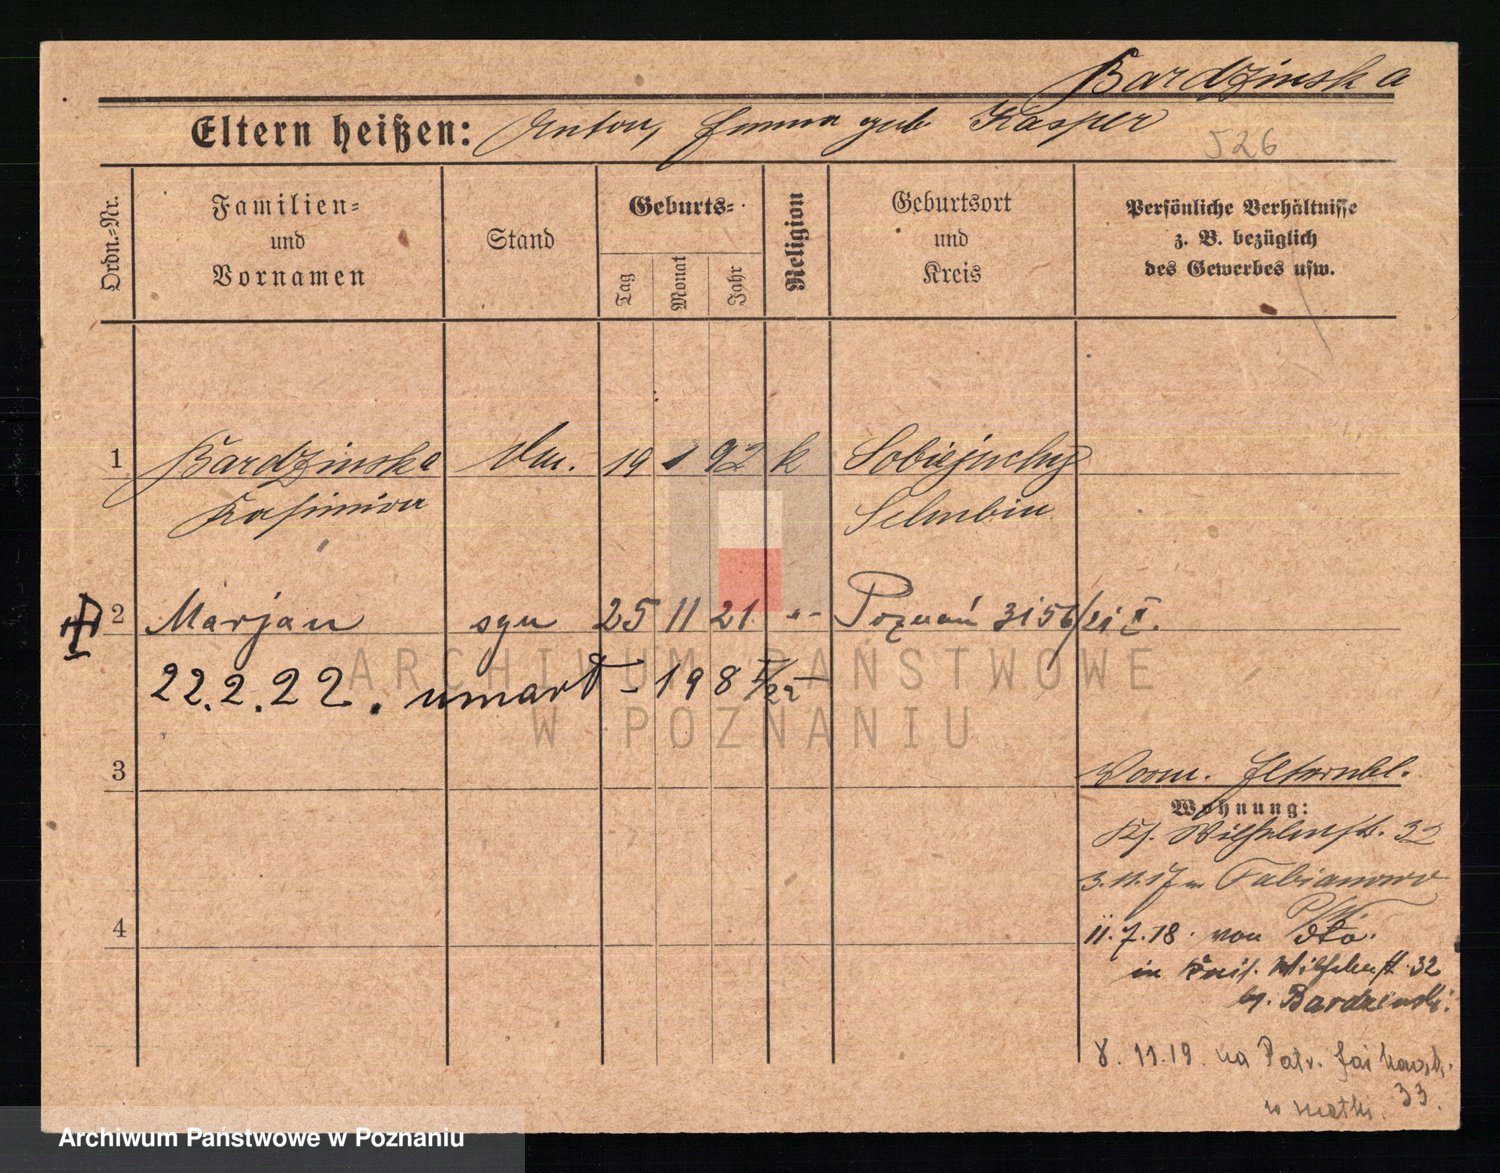 Bardzinska
Eltern heißen: Anton, Emma geb. Kasper
526
Ordn.=Nr.
Familien= und Vornamen
Stand
Geburts=
Tag Monat Jahr
Religion
Geburtsort und Kreis
Persönliche Verhältnisse z. B. bezüglich des Gewerbes usw.
1 Bardzinska 19 1 92 k Sobiejuchy
Kasimira Schubin
2 Marjan syn 25 11 21 -"- Poznań 3156/21 II.
22.2.22. umarł - 198 /22
3
Elternbl.
Wohnung:
Wilhelmst. 32
3.11.17 Fabianowo
4
11.7.18. von dto.
in Wilhelmst. 32
b. Bardzinski.
8.11.19. na Patr. 33.
u matki.
ARCHIWUM PAŃSTWOWE
W POZNANIU
Archiwum Państwowe w Poznaniu